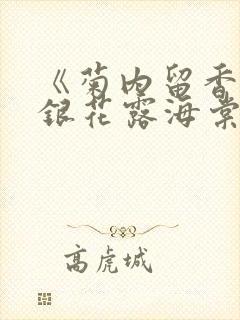 《菊内留香
銀花露海棠
高虎城